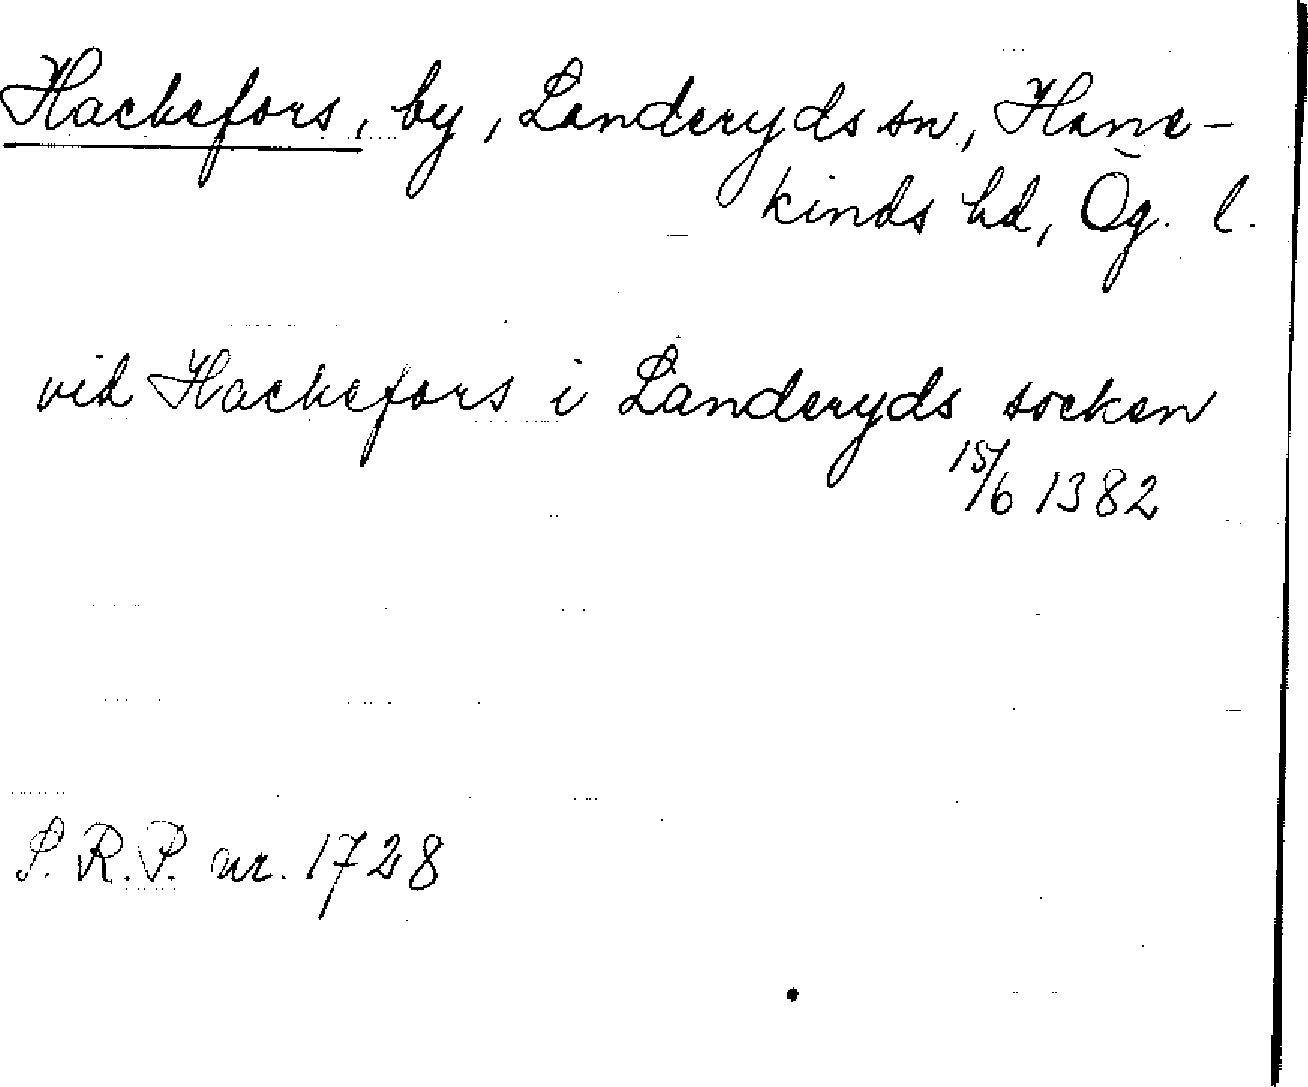 Hackefors, by, Landeryds sn, Hane-
kinds hd, Ög. l.
vid Hackefors i Landeryds socken
15/6 1382
S.R.P. nr. 1728